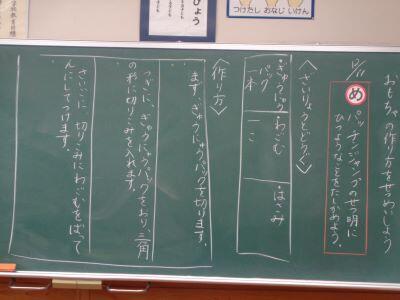 ひょう
つけたし おなじ いけん
おもちゃの作り方をせつめいしよう
12/11
め
パッチンジャンプのせつ明に
ひつようなことをたしかめよう。
〈ざいりょうとどうぐ〉
・ぎゅうにゅう
パック
一本
・わごむ
一こ
・はさみ
〈作り方〉
まず、ぎゅうにゅうパックを切ります。
つぎに、ぎゅうにゅうパックをおり、三角
の形に切りこみを入れます。
さいごに、切りこみにわごむをばって
んにしてつけます。